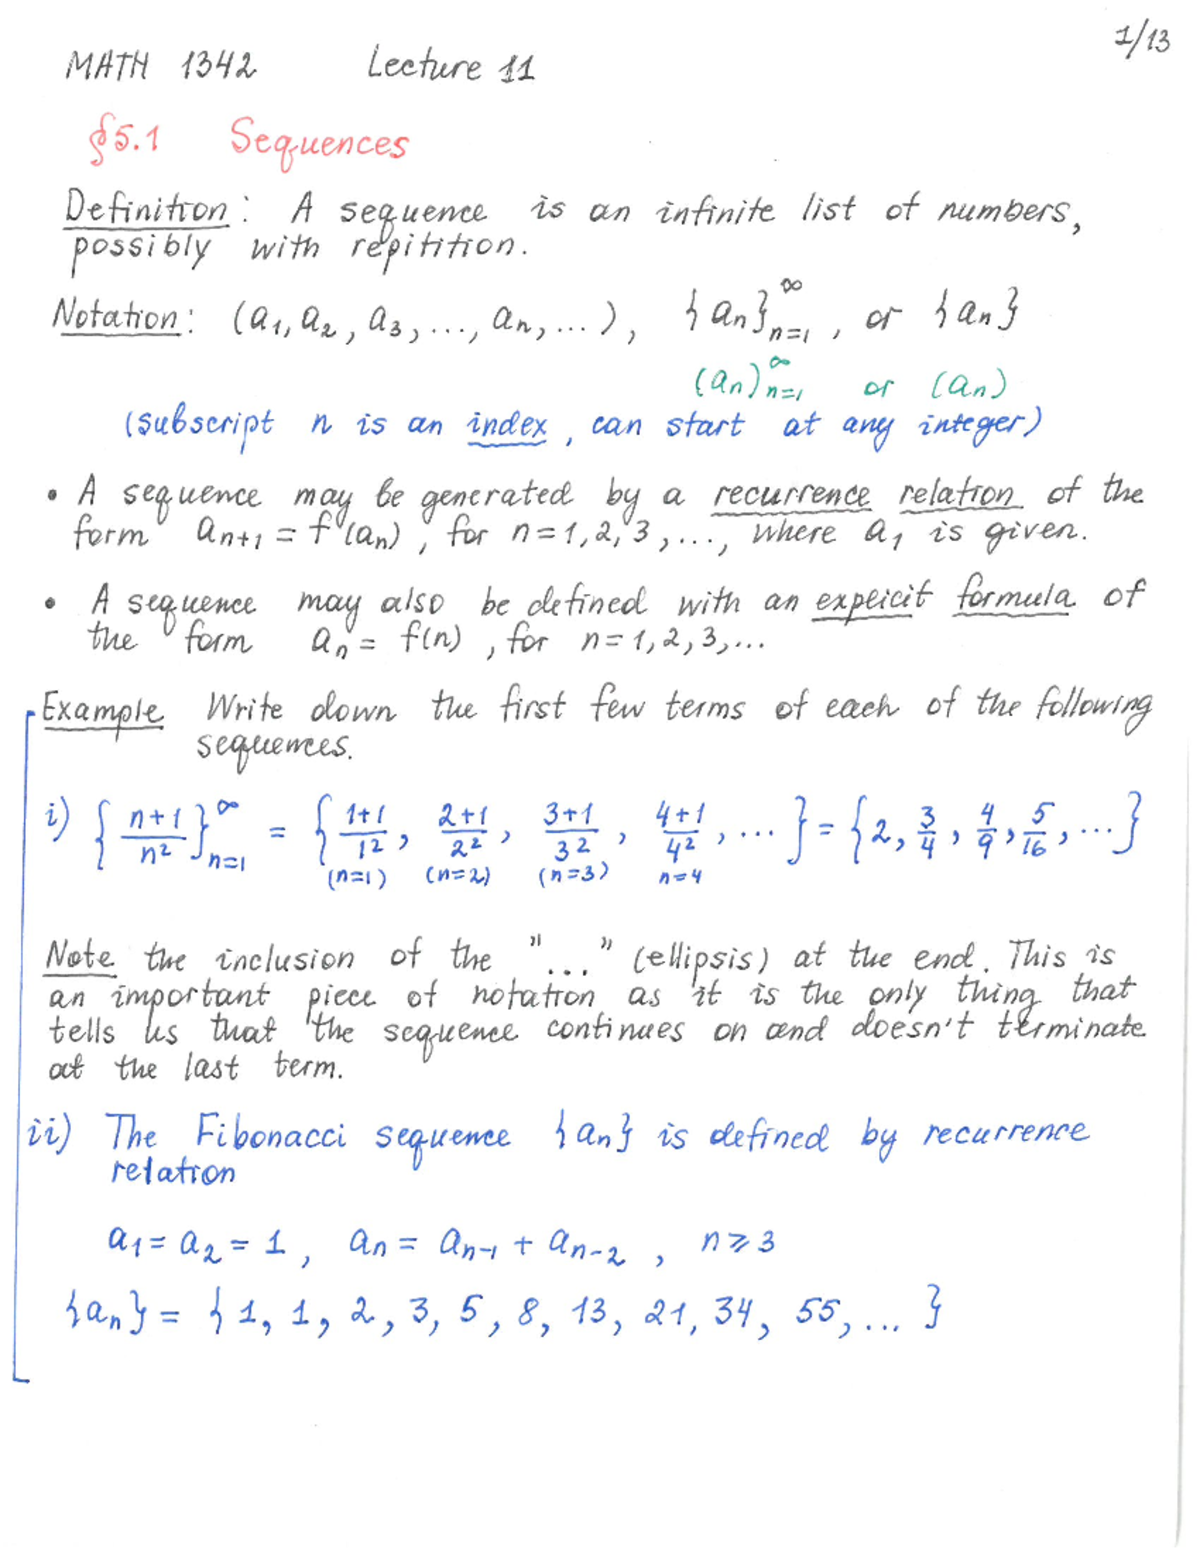 1/13
MATH 1342 Lecture 11
§5.1 Sequences
Definition: A sequence is an infinite list of numbers,
possibly with repitition.
Notation: (a₁, a₂, a₃, ..., aₙ, ...), {aₙ}ₙ₌₁^∞, or {aₙ}
(aₙ)ₙ₌₁^∞ or (aₙ)
(subscript n is an index, can start at any integer)
• A sequence may be generated by a recurrence relation of the
form aₙ₊₁ = f(aₙ), for n=1,2,3,..., where a₁ is given.
• A sequence may also be defined with an explicit formula of
the form aₙ = f(n), for n=1,2,3,...
Example Write down the first few terms of each of the following
sequences.
i) {(n+1)/n²}ₙ₌₁^∞ = {(1+1)/1², (2+1)/2², (3+1)/3², (4+1)/4², ...} = {2, 3/4, 4/9, 5/16, ...}
(n=1) (n=2) (n=3) n=4
Note the inclusion of the "..." (ellipsis) at the end. This is
an important piece of notation as it is the only thing that
tells us that the sequence continues on and doesn't terminate
at the last term.
ii) The Fibonacci sequence {aₙ} is defined by recurrence
relation
a₁ = a₂ = 1, aₙ = aₙ₋₁ + aₙ₋₂, n ⩾ 3
{aₙ} = {1, 1, 2, 3, 5, 8, 13, 21, 34, 55, ...}